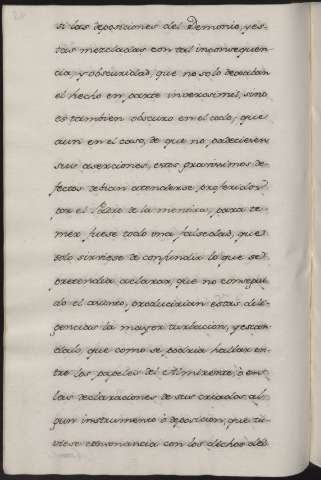 si las deposiciones del Demonio, y es-
tas mezcladas con tal inconsequen-
cia, y obscuridad, que no solo delatan
el hecho en parte inverosimil, sino
es tambien obscuro en el todo; que
aun en el caso, de que no padecieren
sus aserciones, estos gravissimos de-
fectos debian atenderse proferidos
por el Padre de la mentira, para te-
mer fuese todo una falsedad, que
solo sirviese de confundir lo que se
pretendia aclarar, que no consegui-
do el asunto, producirian estas dili-
gencias la mayor turbacion, y escan-
dalo, que como se podria hallar en-
tre los papeles del Almirante, ò en
las declaraciones de sus criados al-
gun instrumento ò deposicion, que tu-
viese consonancia con los dichos del